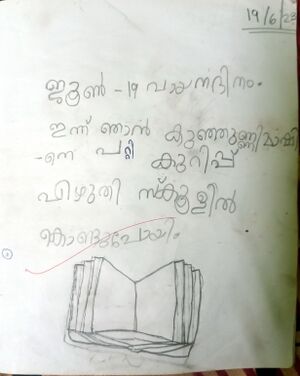 19/6/23
ജൂൺ - 19 വായനദിനം.
ഇന്ന് ഞാൻ കുഞ്ഞുണ്ണിമാഷി
-നെ പറ്റി കുറിപ്പ്
എഴുതി സ്കൂളിൽ
കൊണ്ടുപോയി.